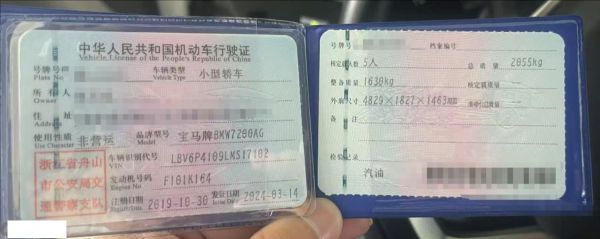 中华人民共和国机动车行驶证
Vehicle License of the People's Republic of China
号牌号码
Plate No.
车辆类型
Vehicle Type
小型轿车
所有人
Owner
住址
Address
使用性质
Use Character
非营运
品牌型号
Model
宝马牌BMW7200AG
浙江省舟山
市公安局交
通警察支队
车辆识别代号
VIN
发动机号码
Engine No.
F101K164
注册日期
Register Date
2019-10-30
发证日期
Issue Date
2024-03-14
号牌号码
档案编号
核定载人数
5人
总质量
2055kg
整备质量
1630kg
核定载质量
外廓尺寸
4829×1827×1463
备注
检验记录
汽油